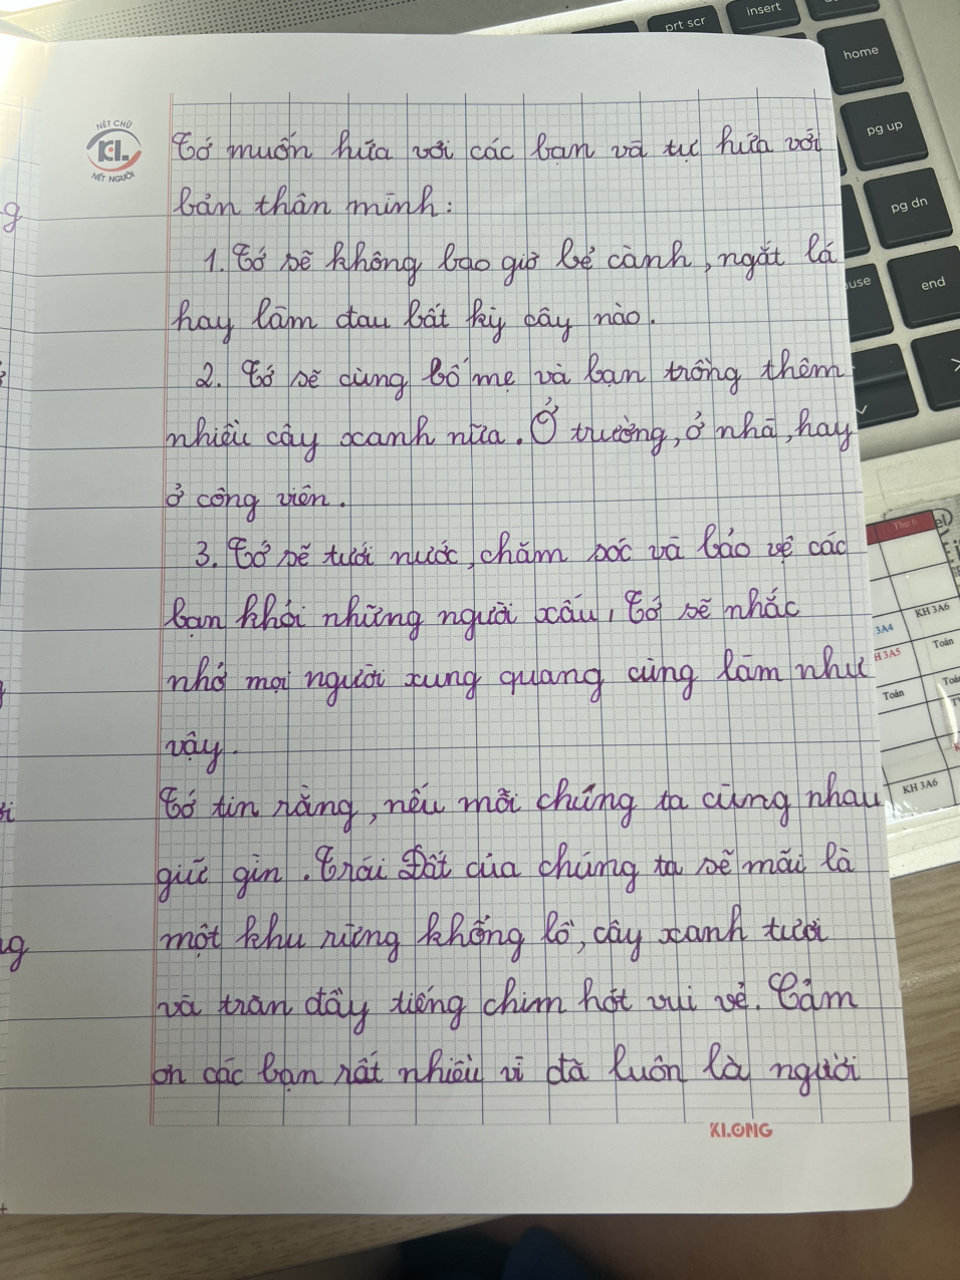 prt scr
insert
home
pg up
pg dn
end
NÉT CHỮ
KL
NÉT NGƯỜI
Tớ muốn hứa với các bạn và tự hứa với
bản thân mình:
1. Tớ sẽ không bao giờ bẻ cành, ngắt lá
hay làm đau bất kỳ cây nào.
2. Tớ sẽ cùng bố mẹ và bạn trồng thêm
nhiều cây xanh nữa. Ở trường, ở nhà, hay
ở công viên.
3. Tớ sẽ tưới nước, chăm sóc và bảo vệ các
bạn khỏi những người xấu, Tớ sẽ nhắc
nhở mọi người xung quang cùng làm như
vậy.
Tớ tin rằng, nếu mỗi chúng ta cùng nhau
giữ gìn. Trái Đất của chúng ta sẽ mãi là
một khu rừng khổng lồ, cây xanh tươi
và tràn đầy tiếng chim hót vui vẻ. Cảm
ơn các bạn rất nhiều vì đã luôn là người
KLONG
Thứ 6
KH 3A6
3A4
H 3A5
Toán
Toán
KH 3A6